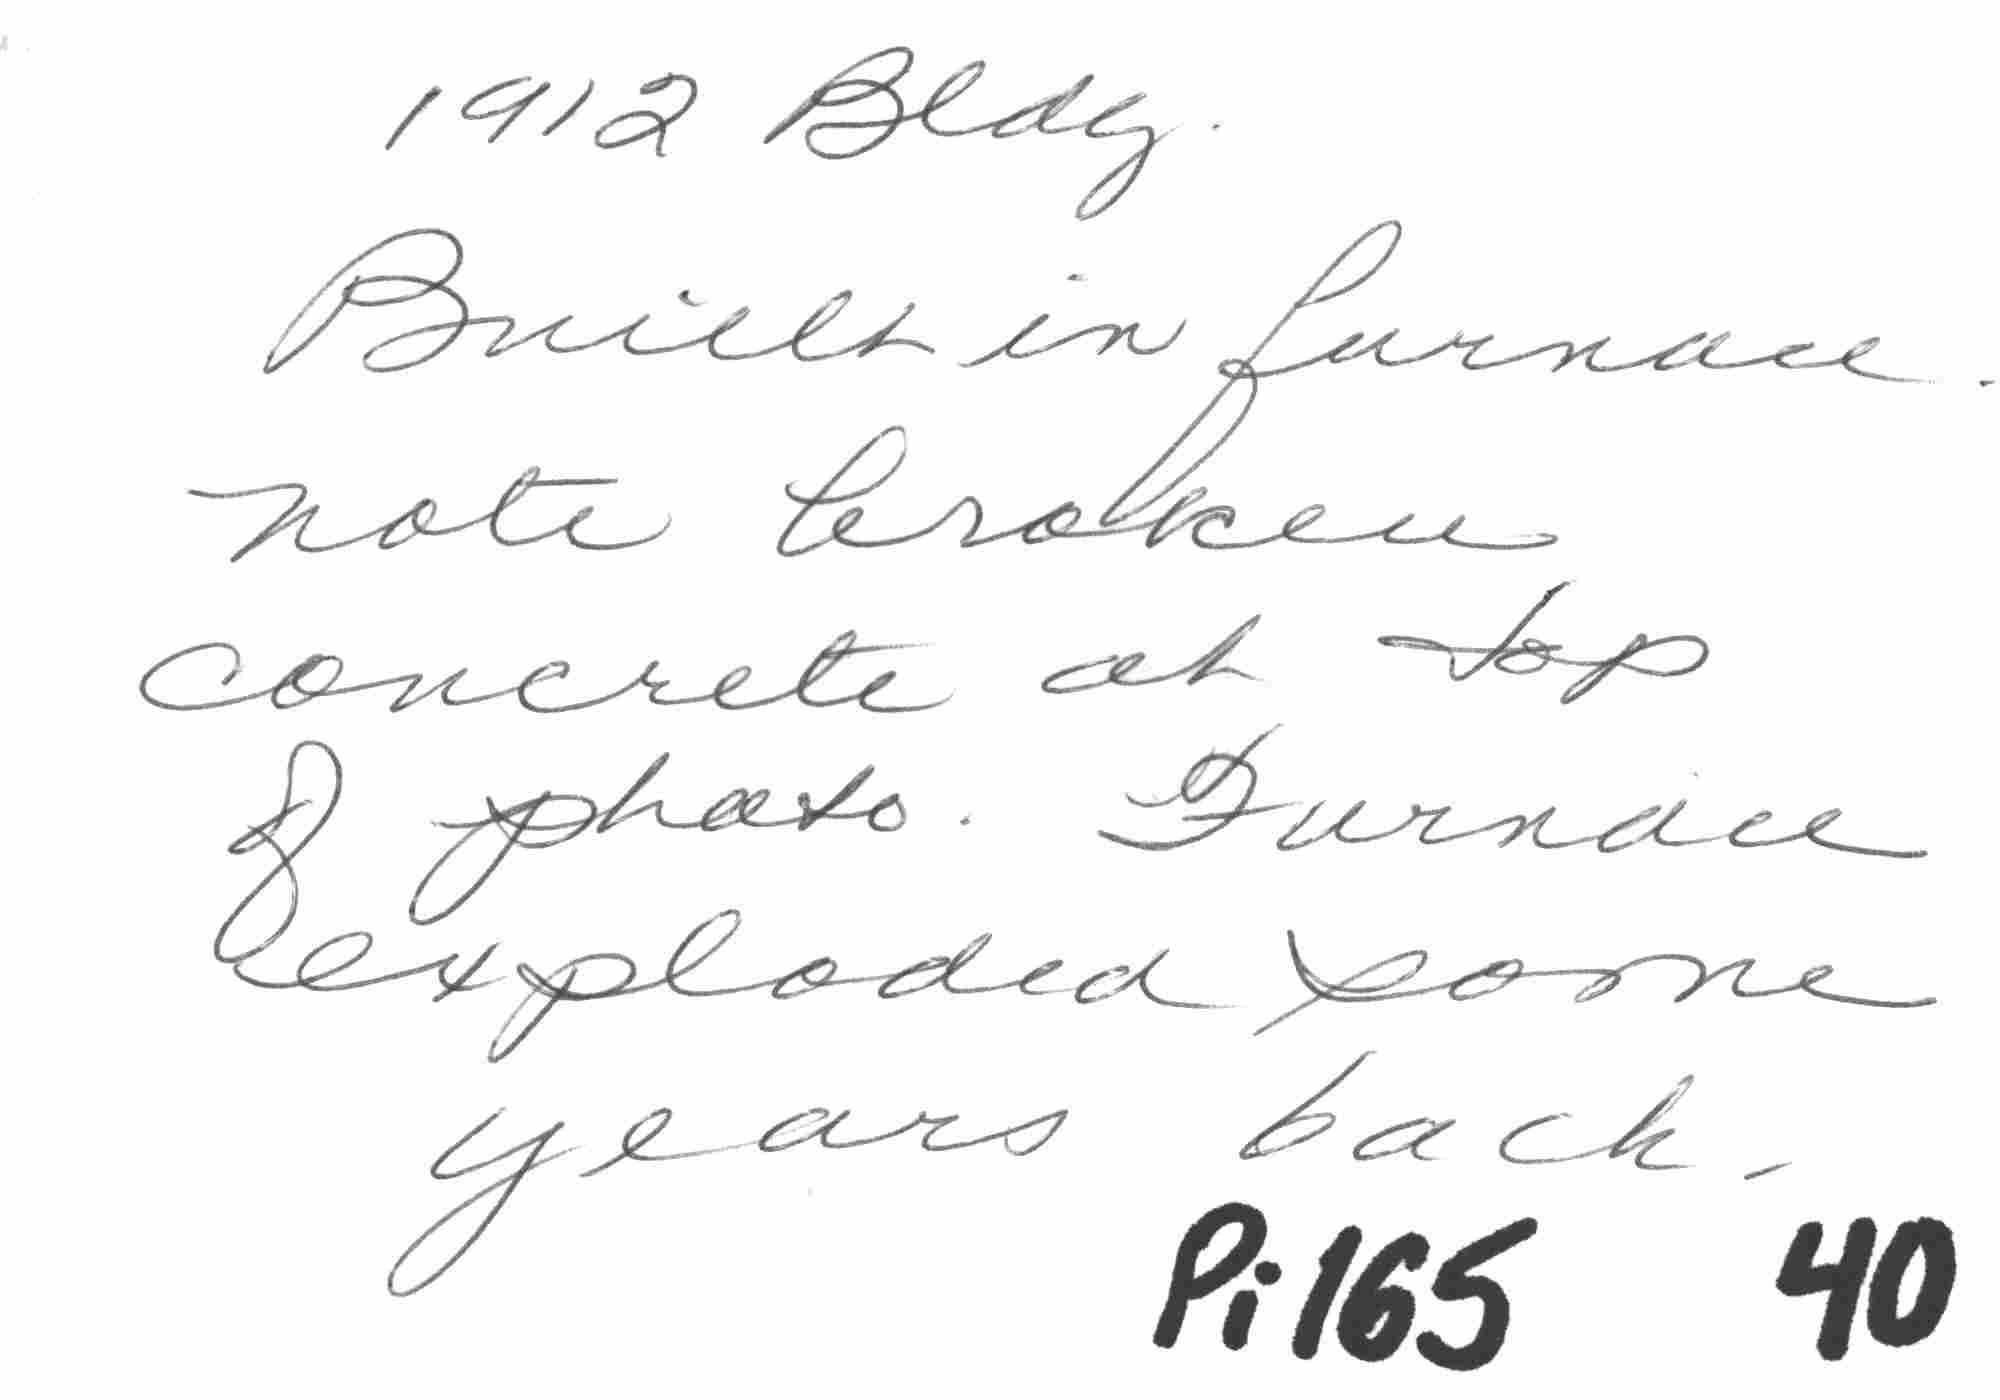 1912 Bldg.
Built in furnace.
note broken
concrete at top
of photo. Furnace
exploded some
years back.
Pi165 40